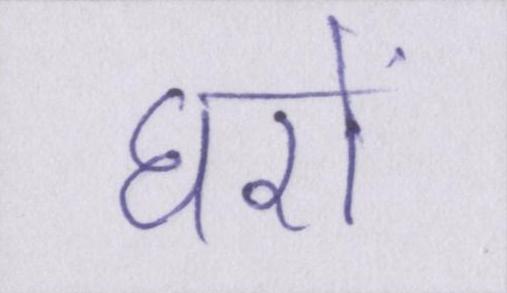 घरों